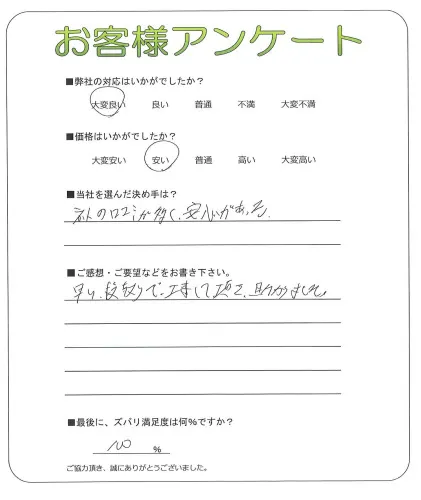 お客様アンケート
■弊社の対応はいかがでしたか?
大変良い 良い 普通 不満 大変不満
■価格はいかがでしたか?
大変安い 安い 普通 高い 大変高い
■当社を選んだ決め手は?
ネットの口コミが多く、安心がある。
■ご感想・ご要望などをお書き下さい。
早い段取りで工事して頂き、助かりました。
■最後に、ズバリ満足度は何%ですか?
100 %
ご協力頂き、誠にありがとうございました。